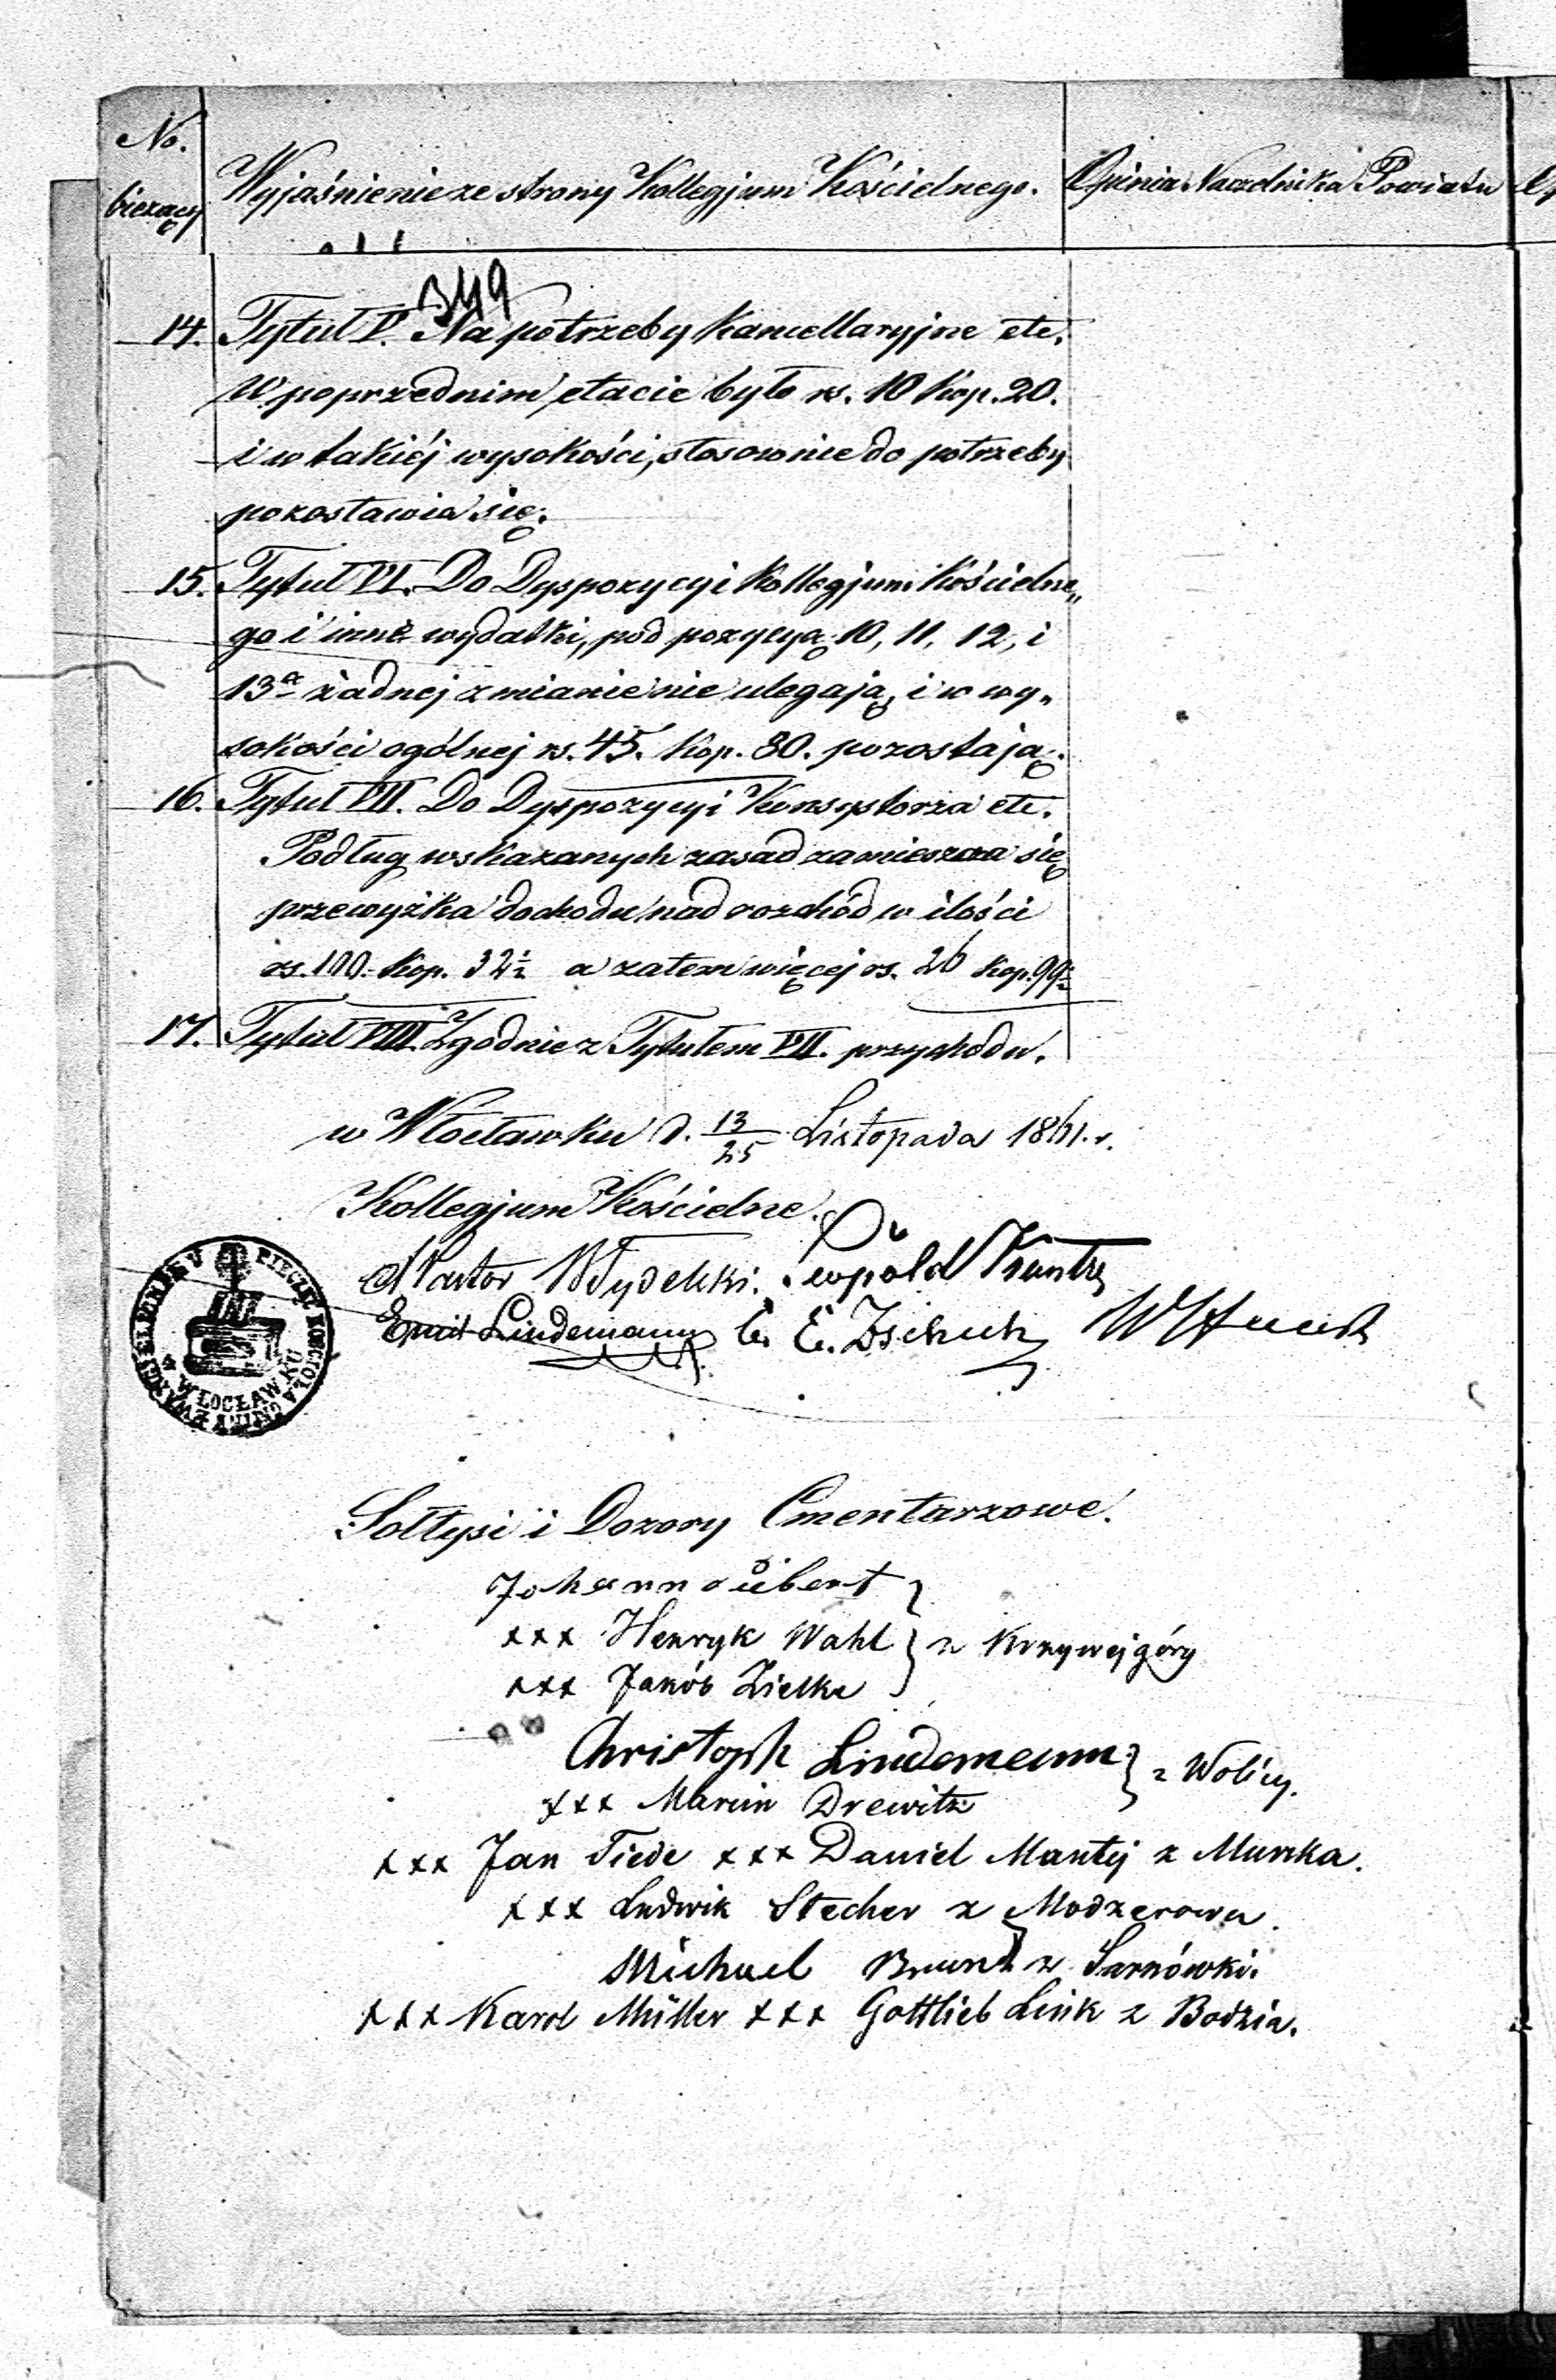 No.
bieżący
Wyjaśnienie ze strony Kollegjum Kościelnego.
Opinia Naczelnika Powiatu
349
14. Tytuł V. Na potrzeby Kancellaryjne etc.
W poprzednim etacie było rs. 10 Kop. 20.
i w takiéj wysokości, stosownie do potrzeby
pozostawia się.
15. Tytuł VI. Do Dyspozycyi Kollegjum Kościelne„
go i inne wydatki, pod pozycyą 10, 11, 12, i
13ª żadnej zmianie nie ulegają, i w wy„
sokości ogólnej rs. 45. Kop. 80. pozostają.
16. Tytuł VII. Do Dyspozycyi Konsystorza etc.
Podług wskazanych zasad zamieszcza się
przewyżka dochodu nad rozchód w ilości
rs. 100. Kop. 32½ a zatem więcej rs. 26 Kop. 99½
17. Tytuł VIII. Zgodnie z Tytułem VII. przychodu.
w Włocławku d. 13/25 Listopada 1861. r.
Kollegjum Kościelne.
Pastor Leopold
Emil Lindemann C. E. Zschuch
PIECZĘĆ KOŚCIOŁA GMINY EWANGIELICKIEY
w WŁOCŁAWKU
Sołtysi i Dozory Cmentarzowe.
Johann
xxx Henryk Wahl } z Krzywejgóry
xxx Jakób Zielke
Christoph Lindemann } z Wolicy.
xxx Marcin Drewitz
xxx Jan Tiede xxx Daniel Mantej z Murzka.
xxx Ludwik Stecher z Modzerowa.
Michael z Sarnówki.
xxx Karol Müller xxx Gottlieb Link z Bodzia.